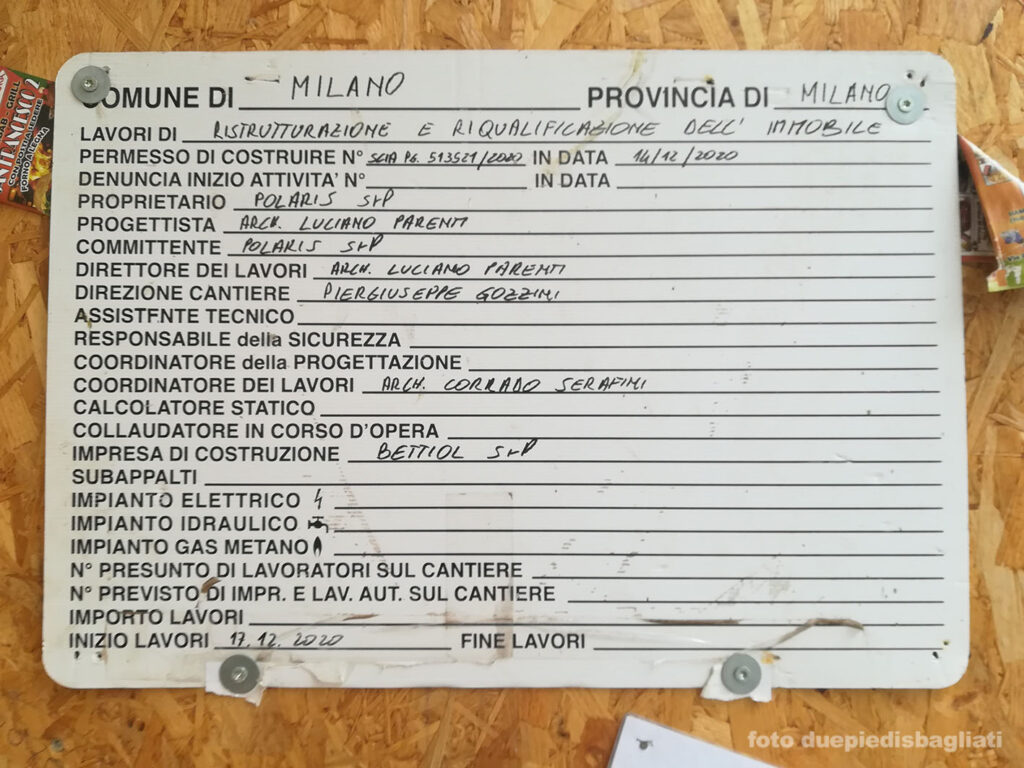 COMUNE DI MILANO PROVINCIA DI MILANO
LAVORI DI RISTRUTTURAZIONE E RIQUALIFICAZIONE DELL' IMMOBILE
PERMESSO DI COSTRUIRE N° SCIA PG. 513521/2020 IN DATA 14/12/2020
DENUNCIA INIZIO ATTIVITA' N° IN DATA
PROPRIETARIO POLARIS SrP
PROGETTISTA ARCH. LUCIANO PARENTI
COMMITTENTE POLARIS SrP
DIRETTORE DEI LAVORI ARCH. LUCIANO PARENTI
DIREZIONE CANTIERE PIERGIUSEPPE GOZZINI
ASSISTENTE TECNICO
RESPONSABILE della SICUREZZA
COORDINATORE della PROGETTAZIONE
COORDINATORE DEI LAVORI ARCH. CORRADO SERAFINI
CALCOLATORE STATICO
COLLAUDATORE IN CORSO D'OPERA
IMPRESA DI COSTRUZIONE BETTIOL SrP
SUBAPPALTI
IMPIANTO ELETTRICO
IMPIANTO IDRAULICO
IMPIANTO GAS METANO
N° PRESUNTO DI LAVORATORI SUL CANTIERE
N° PREVISTO DI IMPR. E LAV. AUT. SUL CANTIERE
IMPORTO LAVORI
INIZIO LAVORI 17.12.2020 FINE LAVORI
foto duepiedisbagliati